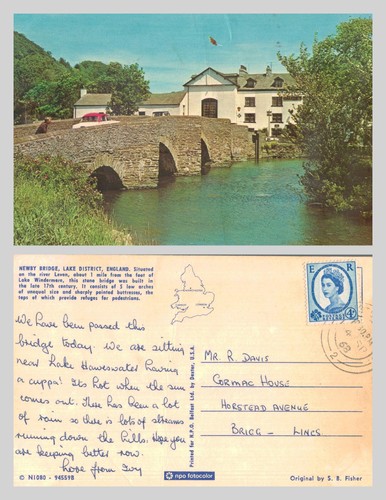 NEWBY BRIDGE, LAKE DISTRICT, ENGLAND. Situated
on the river Leven, about 1 mile from the foot of
Lake Windermere, this stone bridge was built in
the late 17th century. It consists of 5 low arches
of unequal size and sharply pointed buttresses, the
tops of which provide refuges for pedestrians.
We have been passed this
bridge today. We are sitting
near Lake Haweswater having
a cuppa! It's hot when the sun
comes out. There has been a lot
of rain so there is lots of streams
running down the hills. Hope you
are keeping better now.
Love from Ivy
© N1080 - 94559B
npo fotocolor
Printed for N.P.O. Belfast Ltd. by Dexter, U.S.A.
E R
4D
Mr. R. Davis
Cormac House
Horstead Avenue
Brigg - Lincs
Original by S. B. Fisher